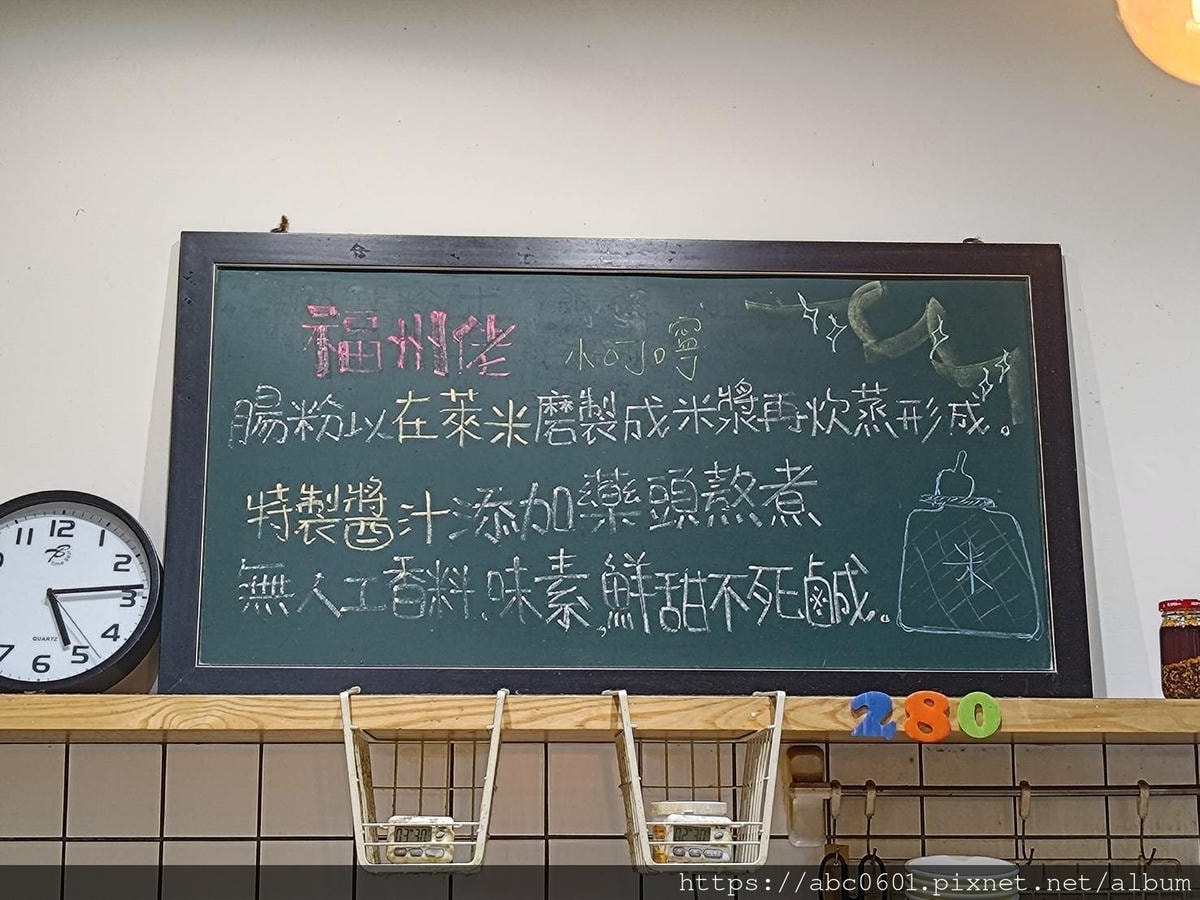 福州佬 小叮嚀
腸粉以在萊米磨製成米漿再炊蒸形成。
特製醬汁添加藥頭熬煮
無人工香料.味素,鮮甜不死鹹。
米
11 12 1
2
3
4
5
6
7
QUARTZ
280
03:30
https://abc0601.pixnet.net/album